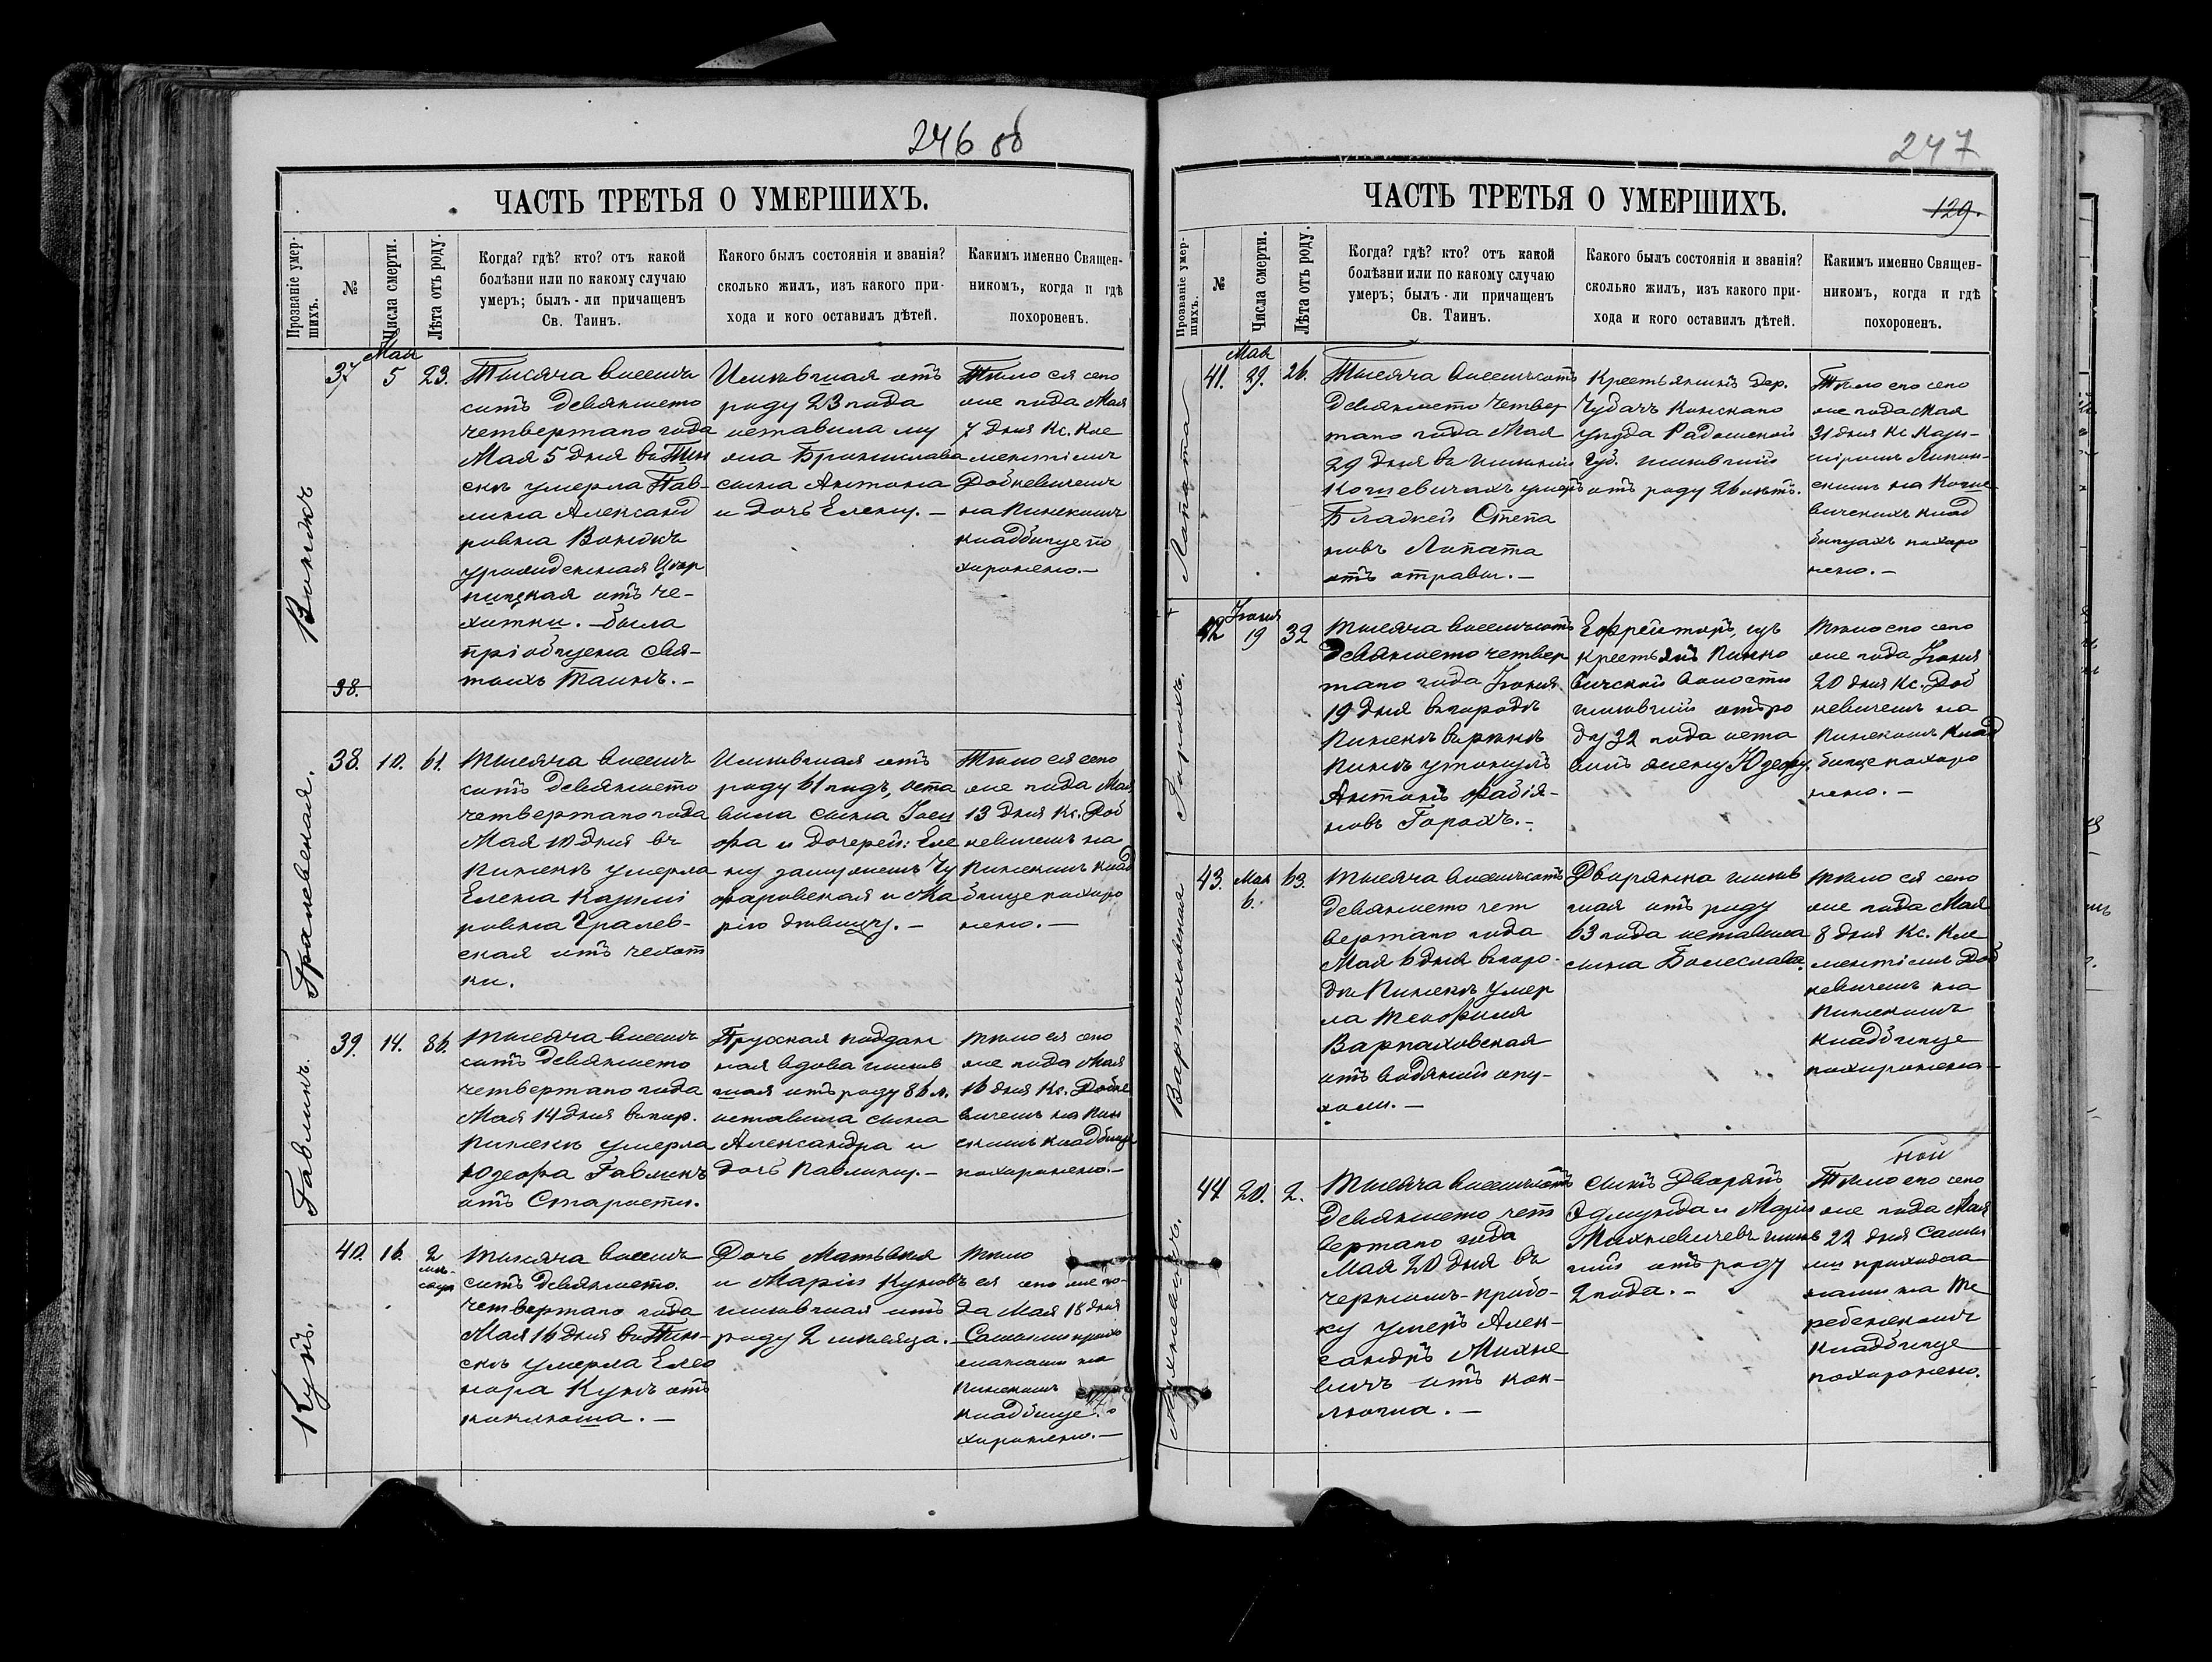 246 об
ЧАСТЬ ТРЕТЬЯ О УМЕРШИХЪ.
Прозваніе умер-
шихъ.
№
Числа смерти.
Лѣта отъ роду.
Когда? гдѣ? кто? отъ какой
болѣзни или по какому случаю
умеръ; былъ-ли причащенъ
Св. Таинъ.
Какого былъ состоянія и званія?
сколько жилъ, изъ какого при-
хода и кого оставилъ дѣтей.
Какимъ именно Священ-
никомъ, когда и гдѣ
похороненъ.
37
Мая
5
23.
Тысяча восемь
сотъ девяносто
четвертаго года
Мая 5 дня въ Пин
скѣ умерла Пав-
лина Александ
ровна
урожденная
отъ ча-
хотки. – была
пріобщена Свя-
тыхъ Таинъ. –
Имѣвшая отъ
роду 23 года
оставила му
жа Бронислава
сына Антона
и дочь Елену. –
Тѣло ея сего
же года Мая
7 дня Кс. Кле
ментіемъ
Добкевичемъ
на Пинскомъ
кладбищѣ по
хоронено. –
38.
38.
10.
61.
Гралевская.
Тысяча восемь
сотъ девяносто
четвертаго года
Мая 10 дня въ
Пинскѣ умерла
Елена Казими
ровна Гралев-
ская отъ чахот
ки.
Имѣвшая отъ
роду 61 годъ, оста
вила сына Іоси
фа и дочерей: Еле
ну замужемъ Чу
фаровская и Ма
рію дѣвицу. –
Тѣло ея сего
же года Мая
13 дня Кс. Доб
кевичемъ на
Пинскомъ клад
бищѣ похоро
нено. –
39.
14.
86.
Гавликъ.
Тысяча восемь
сотъ девяносто
четвертаго года
Мая 14 дня въ гор.
Пинскѣ умерла
Юзефа Гавликъ
отъ Старости.
Прусская поддан
ная вдова имѣв
шая отъ роду 86 л.
оставила сына
Александра и
дочь Павлину. –
Тѣло ея сего
же года Мая
16 дня Кс. Добке
вичемъ на Пин
скомъ кладбищѣ
похоронено. –
40.
16.
2
мѣ-
сяца
Кунъ.
Тысяча восемь
сотъ девяносто
четвертаго года
Мая 16 дня въ Пин-
скѣ умерла Елео
нора Кунъ отъ
коклюша. –
Дочь Матвѣя
и Маріи Куновъ
имѣвшая отъ
роду 2 мѣсяца. –
Тѣло
ея сего же го-
да Мая 18 дня
Самыми прихо
жанами на
Пинскомъ
кладбищѣ по
хоронено. –
247
129.
ЧАСТЬ ТРЕТЬЯ О УМЕРШИХЪ.
Прозваніе умер-
шихъ.
№
Числа смерти.
Лѣта отъ роду.
Когда? гдѣ? кто? отъ какой
болѣзни или по какому случаю
умеръ; былъ-ли причащенъ
Св. Таинъ.
Какого былъ состоянія и званія?
сколько жилъ, изъ какого при-
хода и кого оставилъ дѣтей.
Какимъ именно Священ-
никомъ, когда и гдѣ
похороненъ.
Лопата
41.
Мая
29.
26.
Тысяча восемьсотъ
девяносто четвер
таго года Мая
29 дня въ имѣніи
умеръ
Степа
новъ Лопата
отъ отравы. –
Крестьянинъ дер.
Конскаго
уѣзда Радомской
губ. имѣвшій
отъ роду 26 лѣтъ.
Тѣло его сего
же года Мая
31 дня Кс Кази-
міромъ
скимъ на
вичскихъ клад
бищахъ похоро
нено. –
Горохъ.
42
Іюня
19
32
Тысяча восемьсотъ
девяносто четвер
таго года Іюня
19 дня въ городѣ
Пинскѣ въ рѣкѣ
Пинѣ утонулъ
Антонъ Фабія-
новъ Горохъ. –
Ефрейторъ, изъ
крестьянъ Пинко
вичской волости
имѣвшій отъ ро
ду 32 года оста
вилъ жену Юзефу.
Тѣло его сего
же года Іюня
20 дня Кс. Доб
кевичемъ на
Пинскомъ клад
бищѣ похоро
нено. –
Варпаховская
43.
Мая
6.
63.
Тысяча восемьсотъ
девяносто чет
вертаго года
Мая 6 дня въ горо-
дѣ Пинскѣ умер
ла Теофиля
Варпаховская
отъ водяной опу-
холи. –
Дворянка имѣв
шая отъ роду
63 года оставила
сына Болеслава.
Тѣло ея сего
же года Мая
8 дня Кс. Кле
ментіемъ Доб
кевичемъ на
Пинскомъ
кладбищѣ
похоронена –
Михневичъ.
44
20.
2.
Тысяча восемьсотъ
девяносто чет
вертаго года
Мая 20 дня въ
умеръ Алек-
сандръ Михне
вичъ отъ кок-
люша. –
Сынъ дворянъ
Эдмунда и Маріи
Михневичевъ имѣв
шій отъ роду
2 года. –
Тѣло его сего
же года Мая
22 дня Самы
ми прихожа
нами на Те
ребенскомъ
кладбищѣ
похоронено.